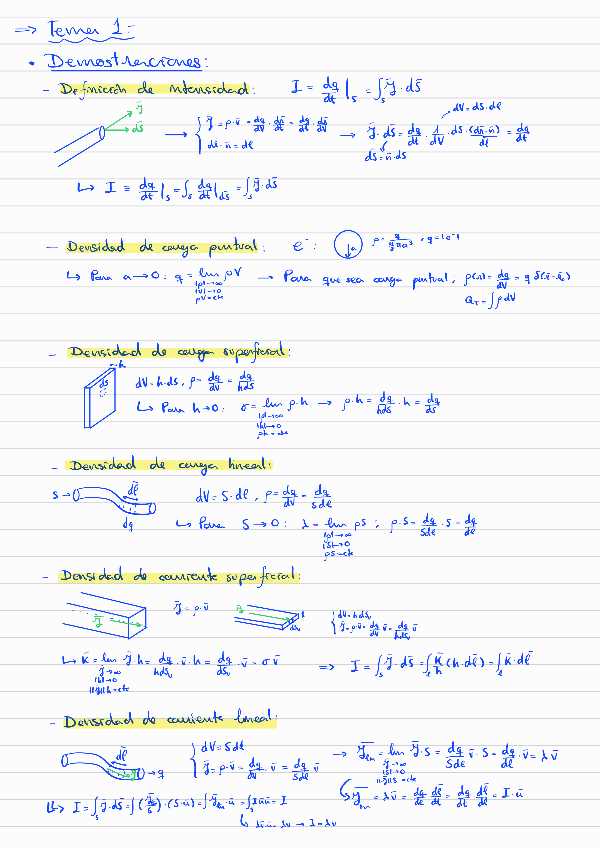 ⇒ Tema 1:
• Demostraciones:
- Definición de intensidad: I = dq/dt|_S = ∫_S J̄·dS̄
J̄
dS̄
→ { J̄ = ρ·v̄ = dq/dV · dn̄/dt = dq/dt · dn̄/dV
dn̄·n̄ = dl
→ J̄·dS̄ = dq/dt · 1/dV · dS·(dn̄·n̄)/dl = dq/dt
dV = dS·dl
dS̄ = n̄·dS
↳ I ≡ dq/dt|_S = ∫_S dq/dt|_dS = ∫_S J̄·dS̄
- Densidad de carga puntual: e⁻:
↳ Para a→0: q = lim ρV → Para que sea carga puntual, ρ(n̄) = dq/dV = q δ(n̄-n̄₀)
|ρ|→∞
|V|→0
ρV=cte
Q_T = ∫ρdV
- Densidad de carga superficial:
h
dS
dV = h·dS, ρ = dq/dV = dq/hdS
↳ Para h→0: σ = lim ρ·h → ρ·h = dq/hdS · h = dq/dS
|ρ|→∞
|h|→0
ρh=cte
- Densidad de carga lineal:
S→ dl̄
dq
dV = S·dl, ρ = dq/dV = dq/Sdl
↳ Para S→0: λ = lim ρS; ρ·S = dq/Sdl · S = dq/dl
|ρ|→∞
|S|→0
ρS=cte
- Densidad de corriente superficial:
J̄
J̄ = ρ·v̄
{ dV = h dSᵥ
J̄ = ρ·v̄ = dq/dV v̄ = dq/hdSᵥ v̄
↳ K̄ = lim J̄·h = dq/hdSᵥ · v̄·h = dq/dSᵥ · v̄ = σ v̄
J̄→∞
|h|→0
||J̄||h=cte
⇒ I = ∫_S J̄·dS̄ = ∫_l K̄/h (h·dl̄) = ∫_l K̄·dl̄
- Densidad de corriente lineal:
dl̄
→q
{ dV = Sdl
J̄ = ρ·v̄ = dq/dV · v̄ = dq/Sdl v̄
→ J̄_lin = lim J̄·S = dq/Sdl v̄·S = dq/dl · v̄ = λv̄
J̄→∞
|S|→0
||J̄||S=cte
J̄_lin = λv̄ = dq/dl dl̄/dt = dq/dt dl̄/dl = I·ū
↳ I = ∫_S J̄·dS̄ = ∫(J̄_lin/S)·(S·ū) = ∫J̄_lin·ū = ∫_S Iūū = I